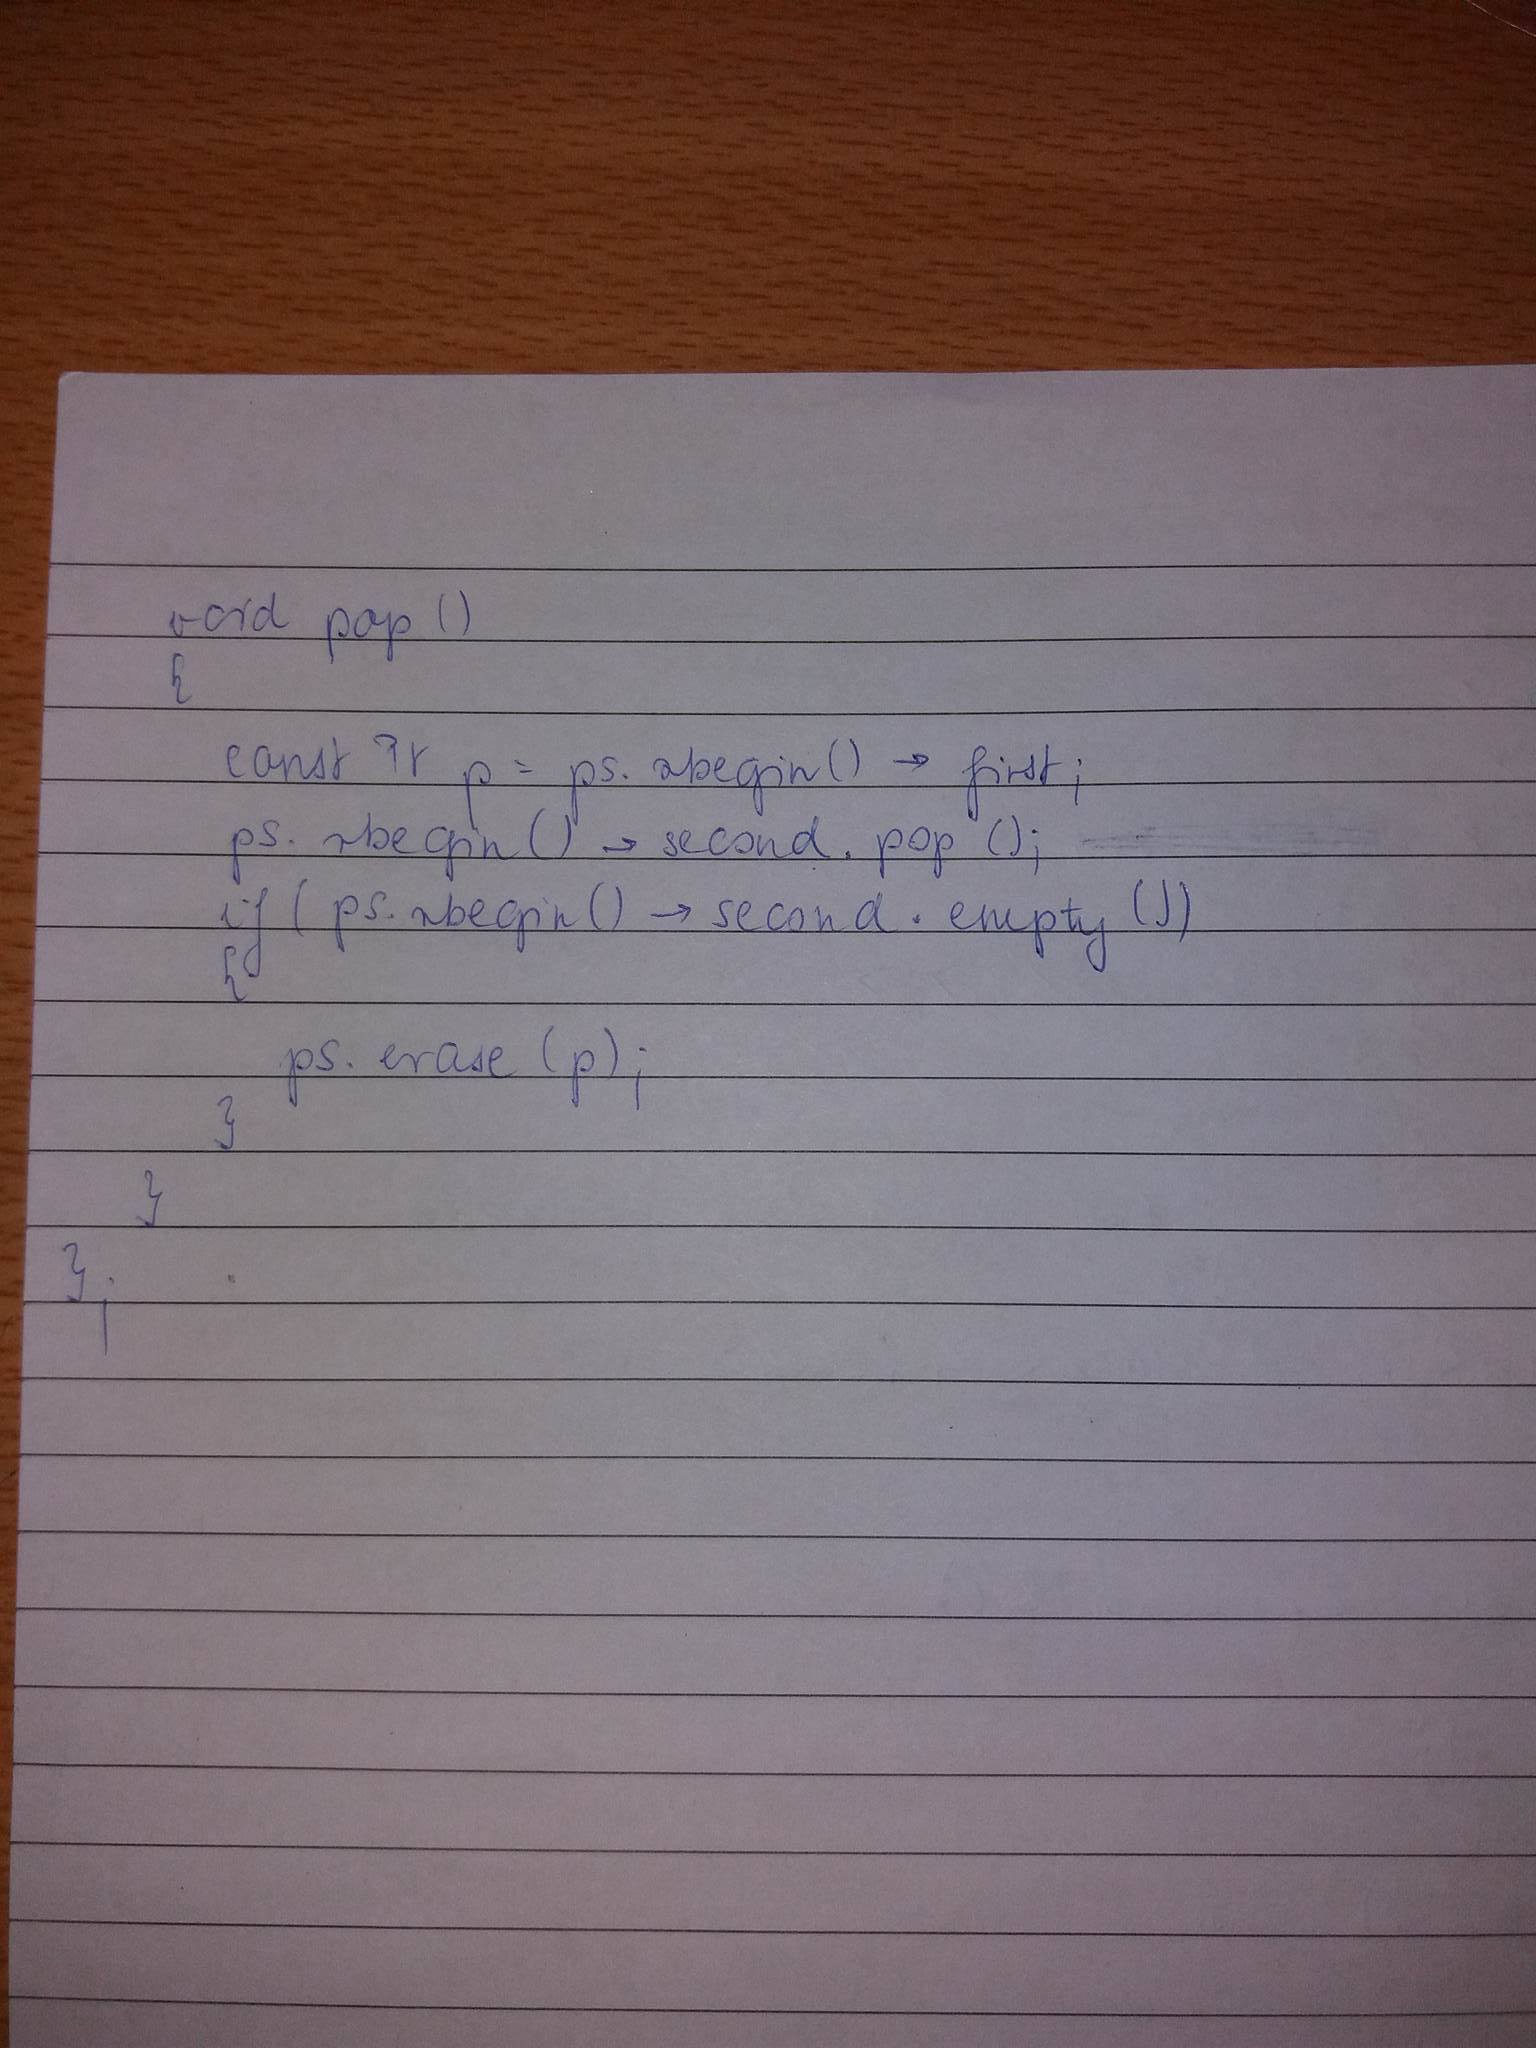 void pop()
{
const Pr p = ps.rbegin() → first;
ps.rbegin() → second.pop();
if (ps.rbegin() → second.empty())
{
ps.erase(p);
}
}
};